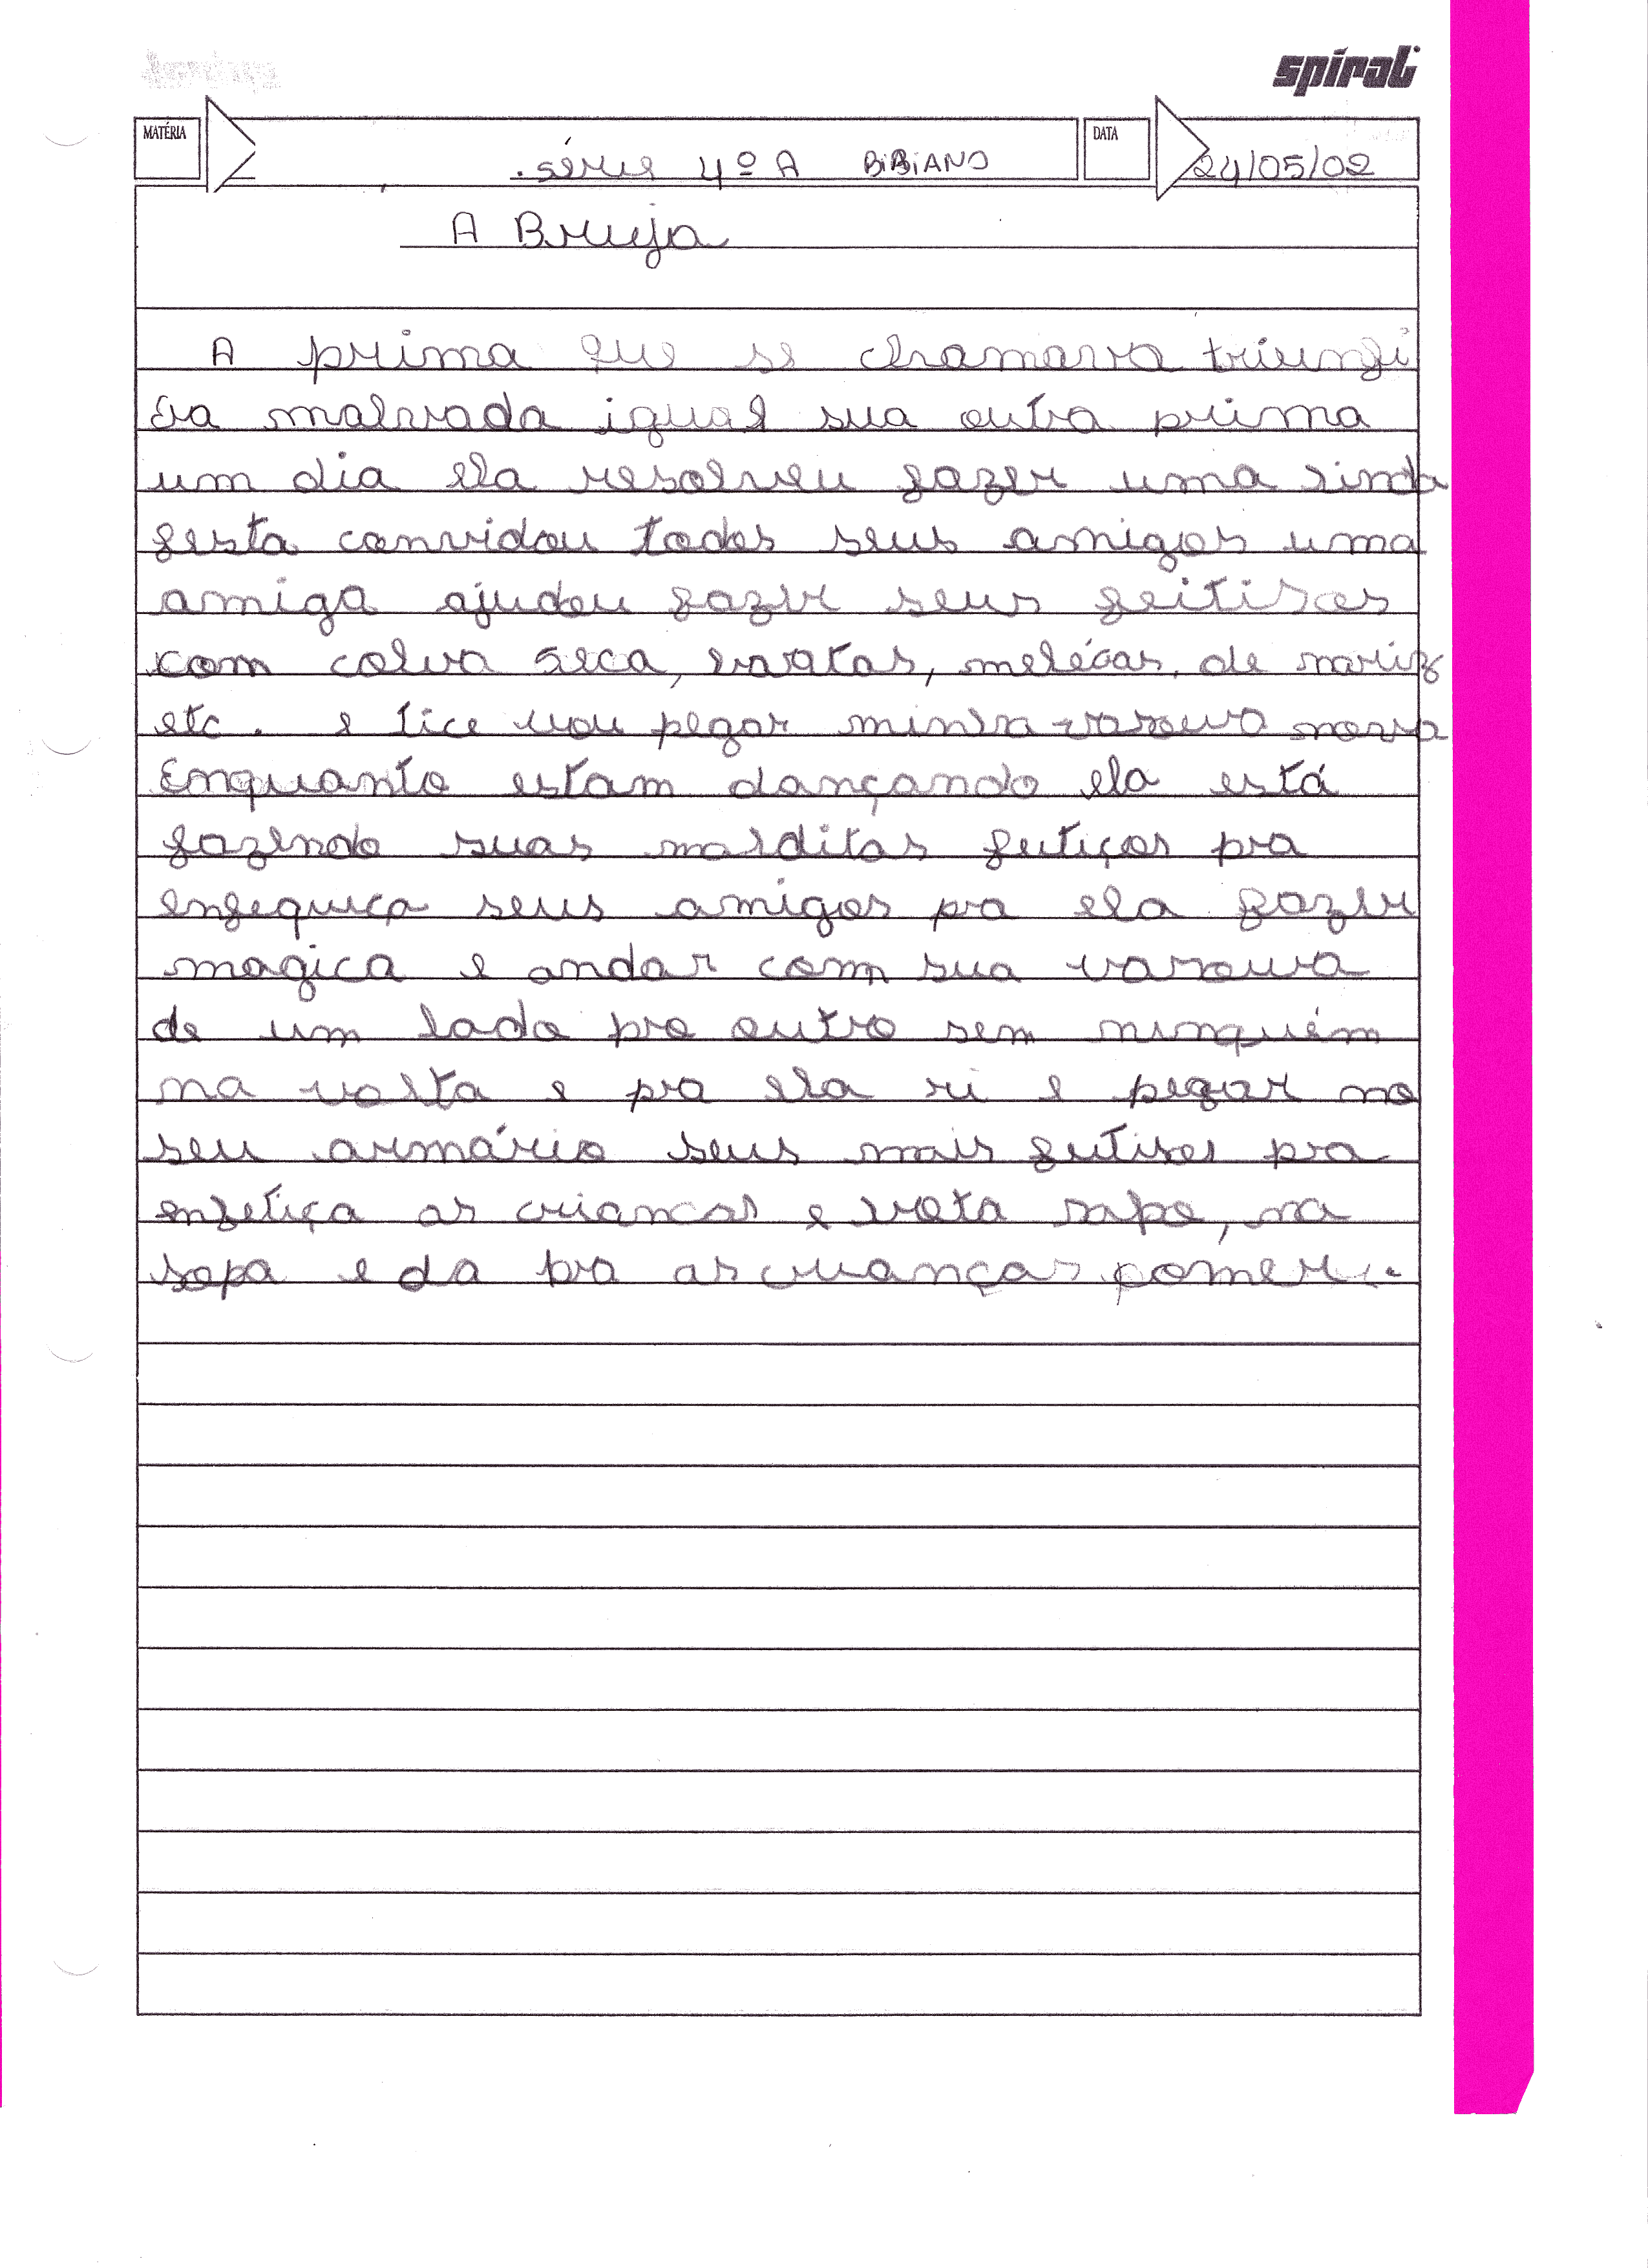 spiral
MATÉRIA série 4º A BiBiANO DATA 24/05/02
A Bruja
A prima que se chamava triunfi
Era malvada igual sua outra prima
um dia ela resolveu fazer uma linda
festa convidou todos seus amigos uma
amiga ajudou fazer seus feitisos
com colva seca, varatas, melécas, de nariz
etc. e tice vou pegar minha vasoura nova
Enquanto estam dançando ela está
fazendo suas malditas feitiços pra
enfequiça seus amigos pra ela fazer
magica e andar com sua vasoura
de um lado pro outro sem ninquém
na volta e pra ela ri e pegar no
seu armário seus mais feitisos pra
enfetiça as criancas e vota sapo, na
sopa e da pra as crianças comer.